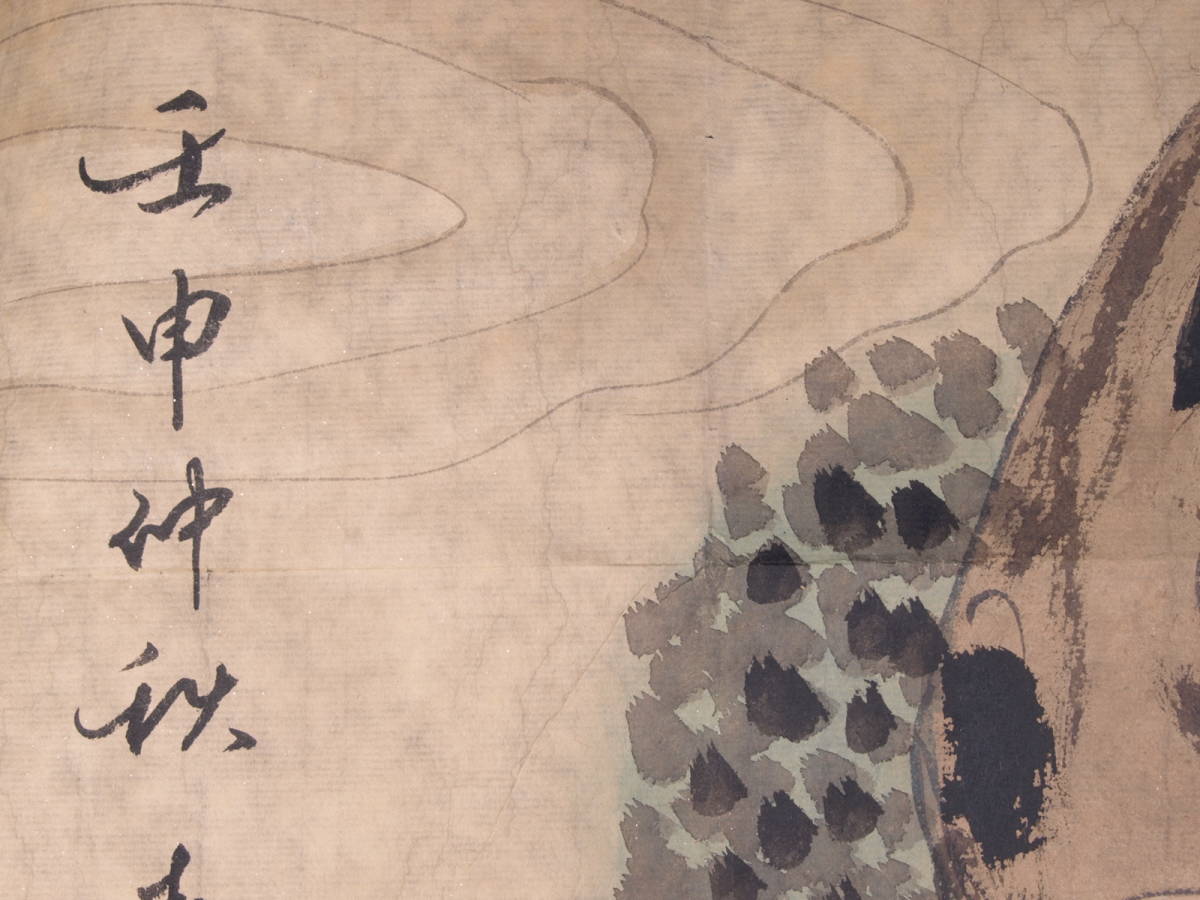 壬申仲秋